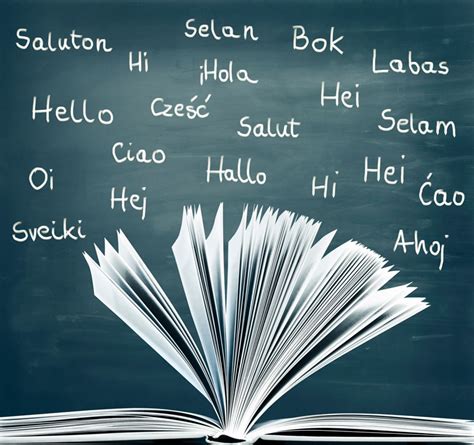 Saluton
Selan
Bok
Hi
¡Hola
Labas
Hello
Cześć
Hei
Salut
Selam
Ciao
Oi
Hej
Hallo
Hi
Hei
Ćao
Sveiki
Ahoj